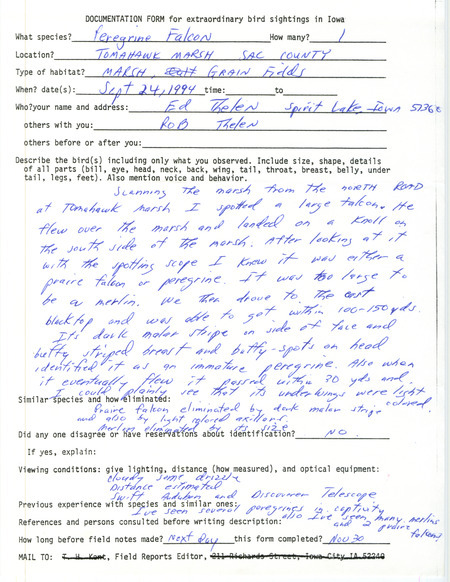 DOCUMENTATION FORM for extraordinary bird sightings in Iowa
What species? Peregrine Falcon How many? 1
Location? TOMAHAWK MARSH SAC COUNTY
Type of habitat? MARSH, GRAIN Fields
When? date(s): Sept 24, 1994 time: to
Who?your name and address: Ed Thelen Spirit Lake, Iowa 51360
others with you: ROB Thelen
others before or after you:
Describe the bird(s) including only what you observed. Include size, shape, details
of all parts (bill, eye, head, neck, back, wing, tail, throat, breast, belly, under
tail, legs, feet). Also mention voice and behavior.
Scanning the marsh from the NORTH ROAD
at Tomahawk marsh I spotted a large falcon. He
flew over the marsh and landed on a knoll on
the south side of the marsh. After looking at it
with the spotting scope I knew it was either a
praire falcon or peregrine. It was too large to
be a merlin. We then drove to the east
blacktop and was able to get within 100-150 yds.
It's dark malar stripe on side of face and
buffy striped breast and buffy-spots on head
identified it as an immature peregrine. Also when
it eventually flew it passed within 30 yds and
I could plainly see that its underwings were light
colored.
Similar species and how eliminated:
Praire falcon eliminated by dark malar stripe
and also by light colored axillars.
Merlin eliminated by its size
Did any one disagree or have reservations about identification? NO
If yes, explain:
Viewing conditions: give lighting, distance (how measured), and optical equipment:
cloudy some drizzle
Distance estimated
Swift Audubon and Discoverer Telescope
Previous experience with species and similar ones:
I've seen several peregrines in captivity
also I've seen many merlins
and 2 praire falcons.
References and persons consulted before writing description:
How long before field notes made? Next Day this form completed? Nov 30
MAIL TO: T. H. Kent, Field Reports Editor, 211 Richards Street, Iowa City, IA 52240